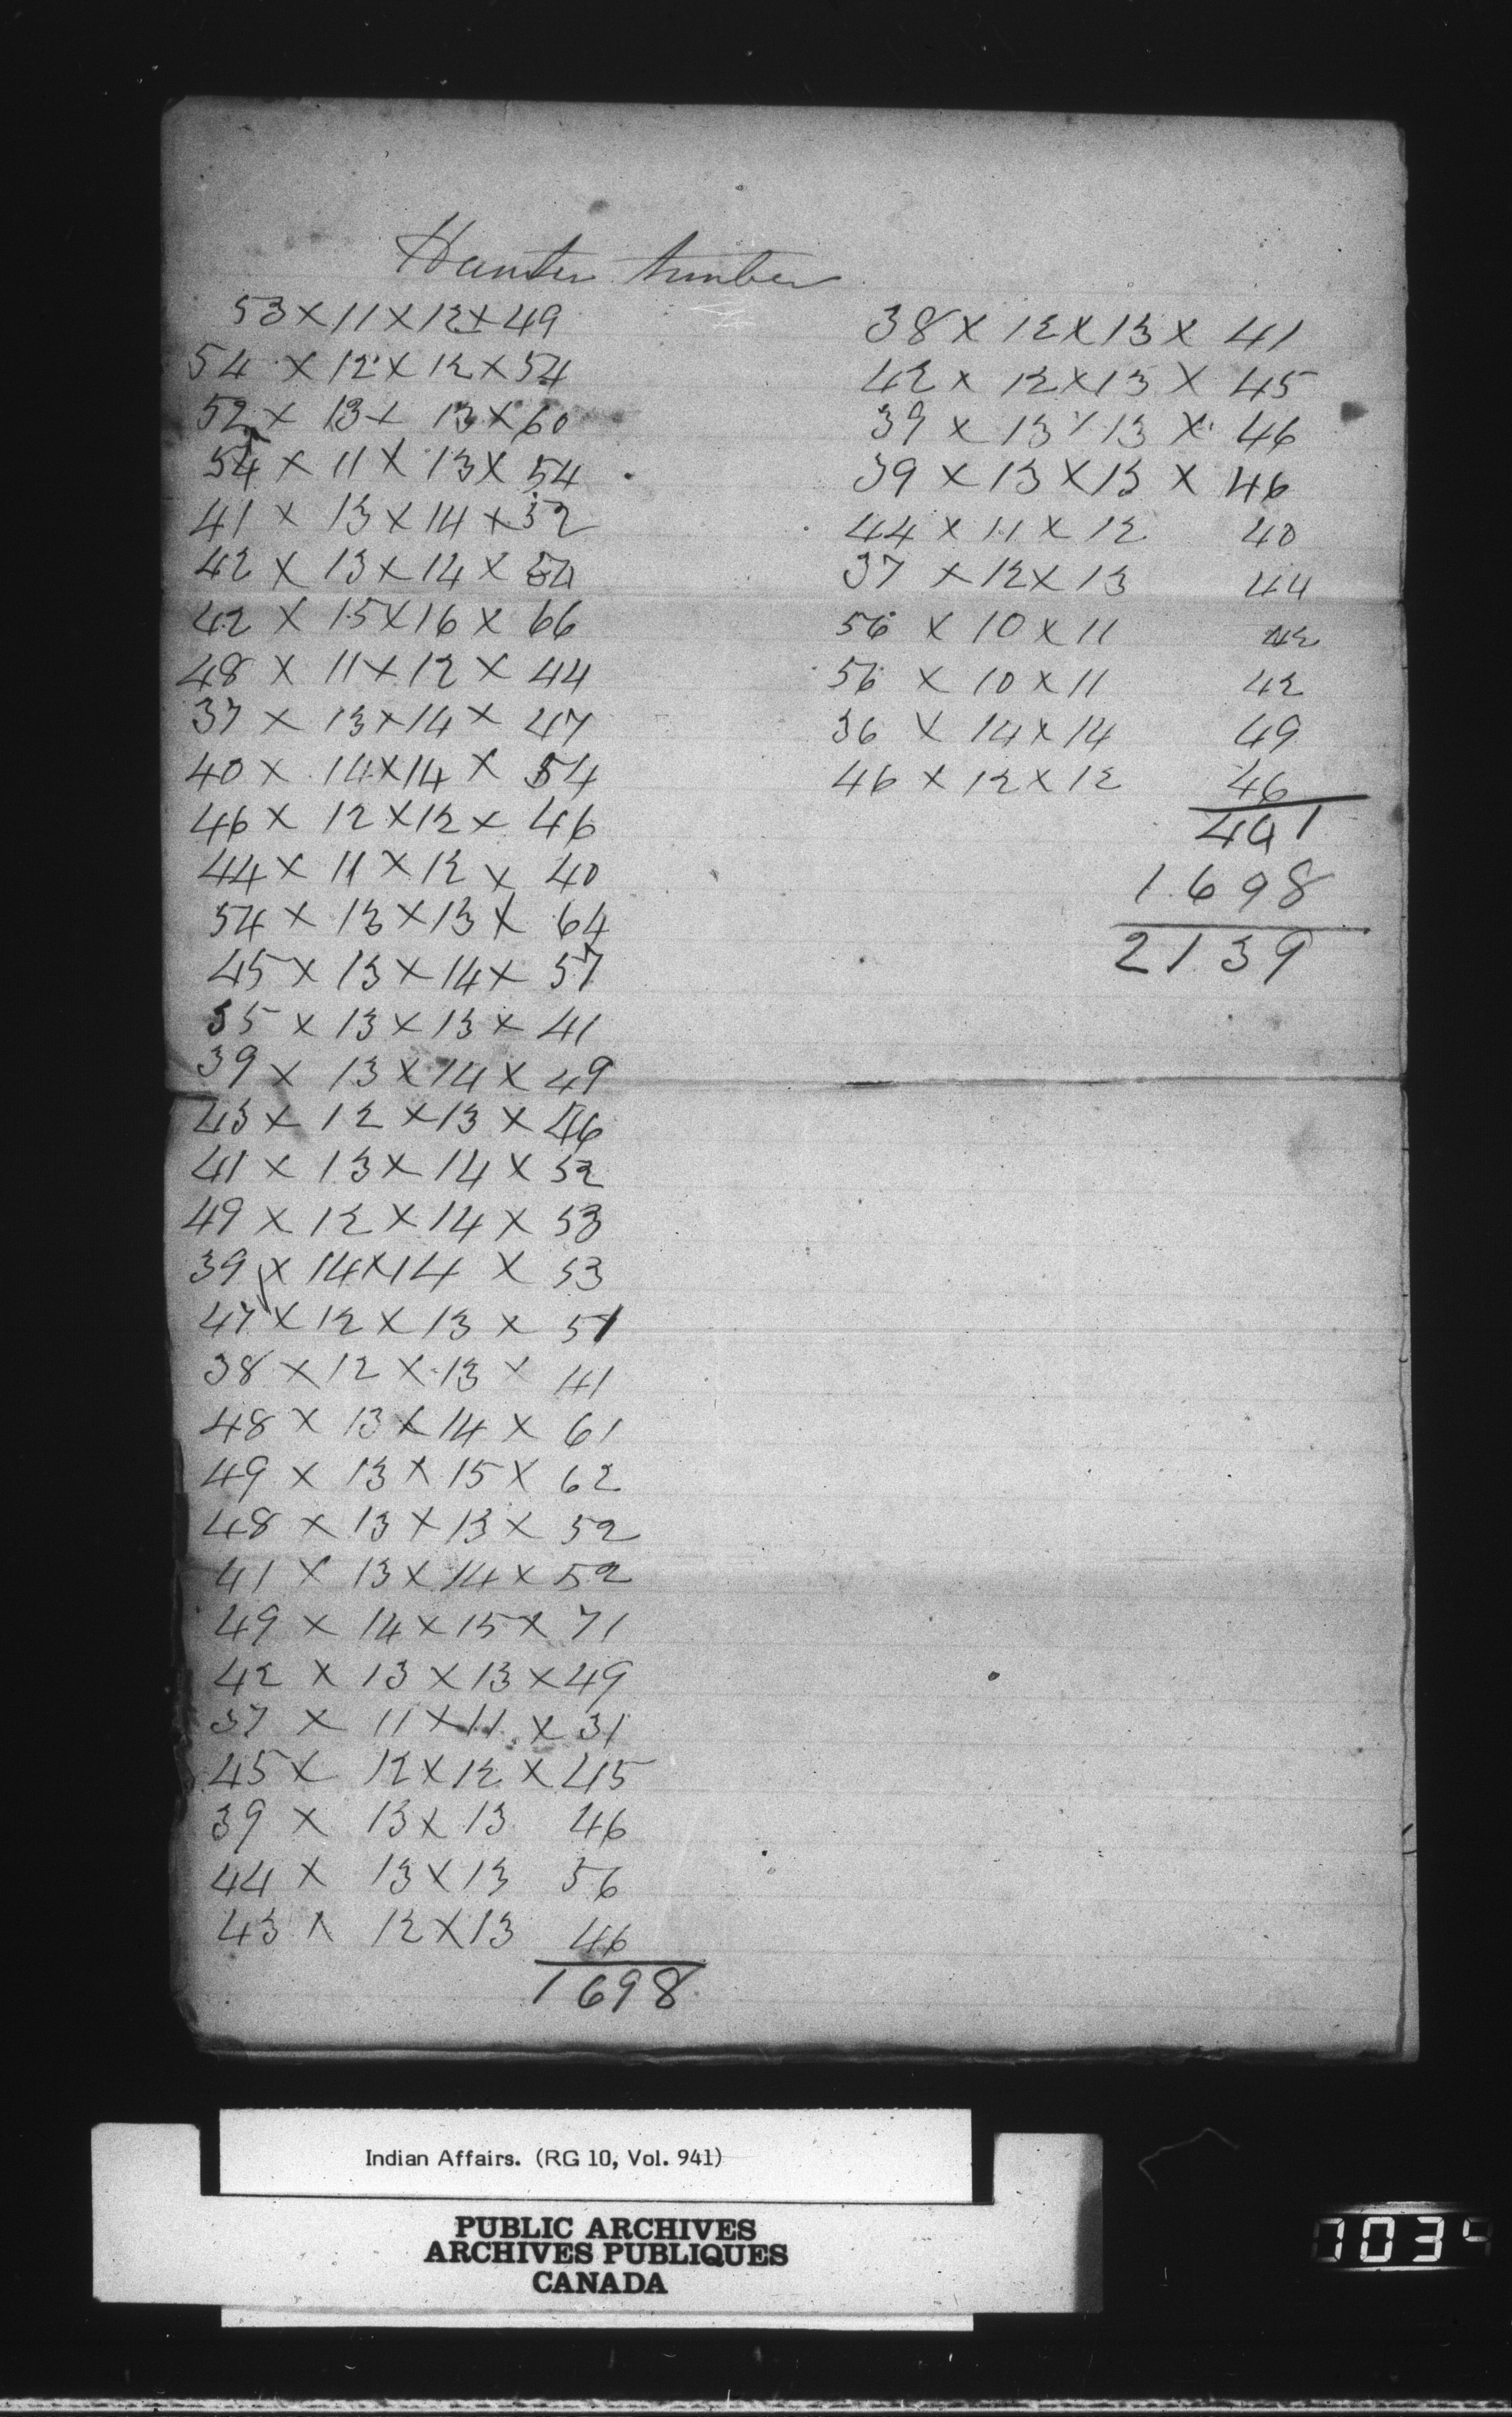 Hunter timber
53 x 11 x 12 x 49
54 x 12 x 12 x 54
52 x 13 x 13 x 60
54 x 11 x 13 x 54
41 x 13 x 14 x 52
42 x 13 x 14 x 54
42 x 15 x 16 x 66
48 x 11 x 12 x 44
37 x 13 x 14 x 47
40 x 14 x 14 x 54
46 x 12 x 12 x 46
44 x 11 x 12 x 40
54 x 13 x 13 x 64
45 x 13 x 14 x 57
35 x 13 x 13 x 41
39 x 13 x 14 x 49
43 x 12 x 13 x 46
41 x 13 x 14 x 52
49 x 12 x 14 x 53
39 x 14 x 14 x 53
47 x 12 x 13 x 51
38 x 12 x 13 x 41
48 x 13 x 14 x 61
49 x 13 x 15 x 62
48 x 13 x 13 x 52
41 x 13 x 14 x 52
49 x 14 x 15 x 71
42 x 13 x 13 x 49
37 x 11 x 11 x 31
45 x 12 x 12 x 45
39 x 13 x 13 46
44 x 13 x 13 56
43 x 12 x 13 46
1698
38 x 12 x 13 x 41
42 x 12 x 13 x 45
39 x 13 x 13 x 46
39 x 13 x 13 x 46
44 x 11 x 12 40
37 x 12 x 13 44
56 x 10 x 11 42
56 x 10 x 11 42
36 x 14 x 14 49
46 x 12 x 12 46
441
1698
2139
Indian Affairs. (RG 10, Vol. 941)
PUBLIC ARCHIVES
ARCHIVES PUBLIQUES
CANADA